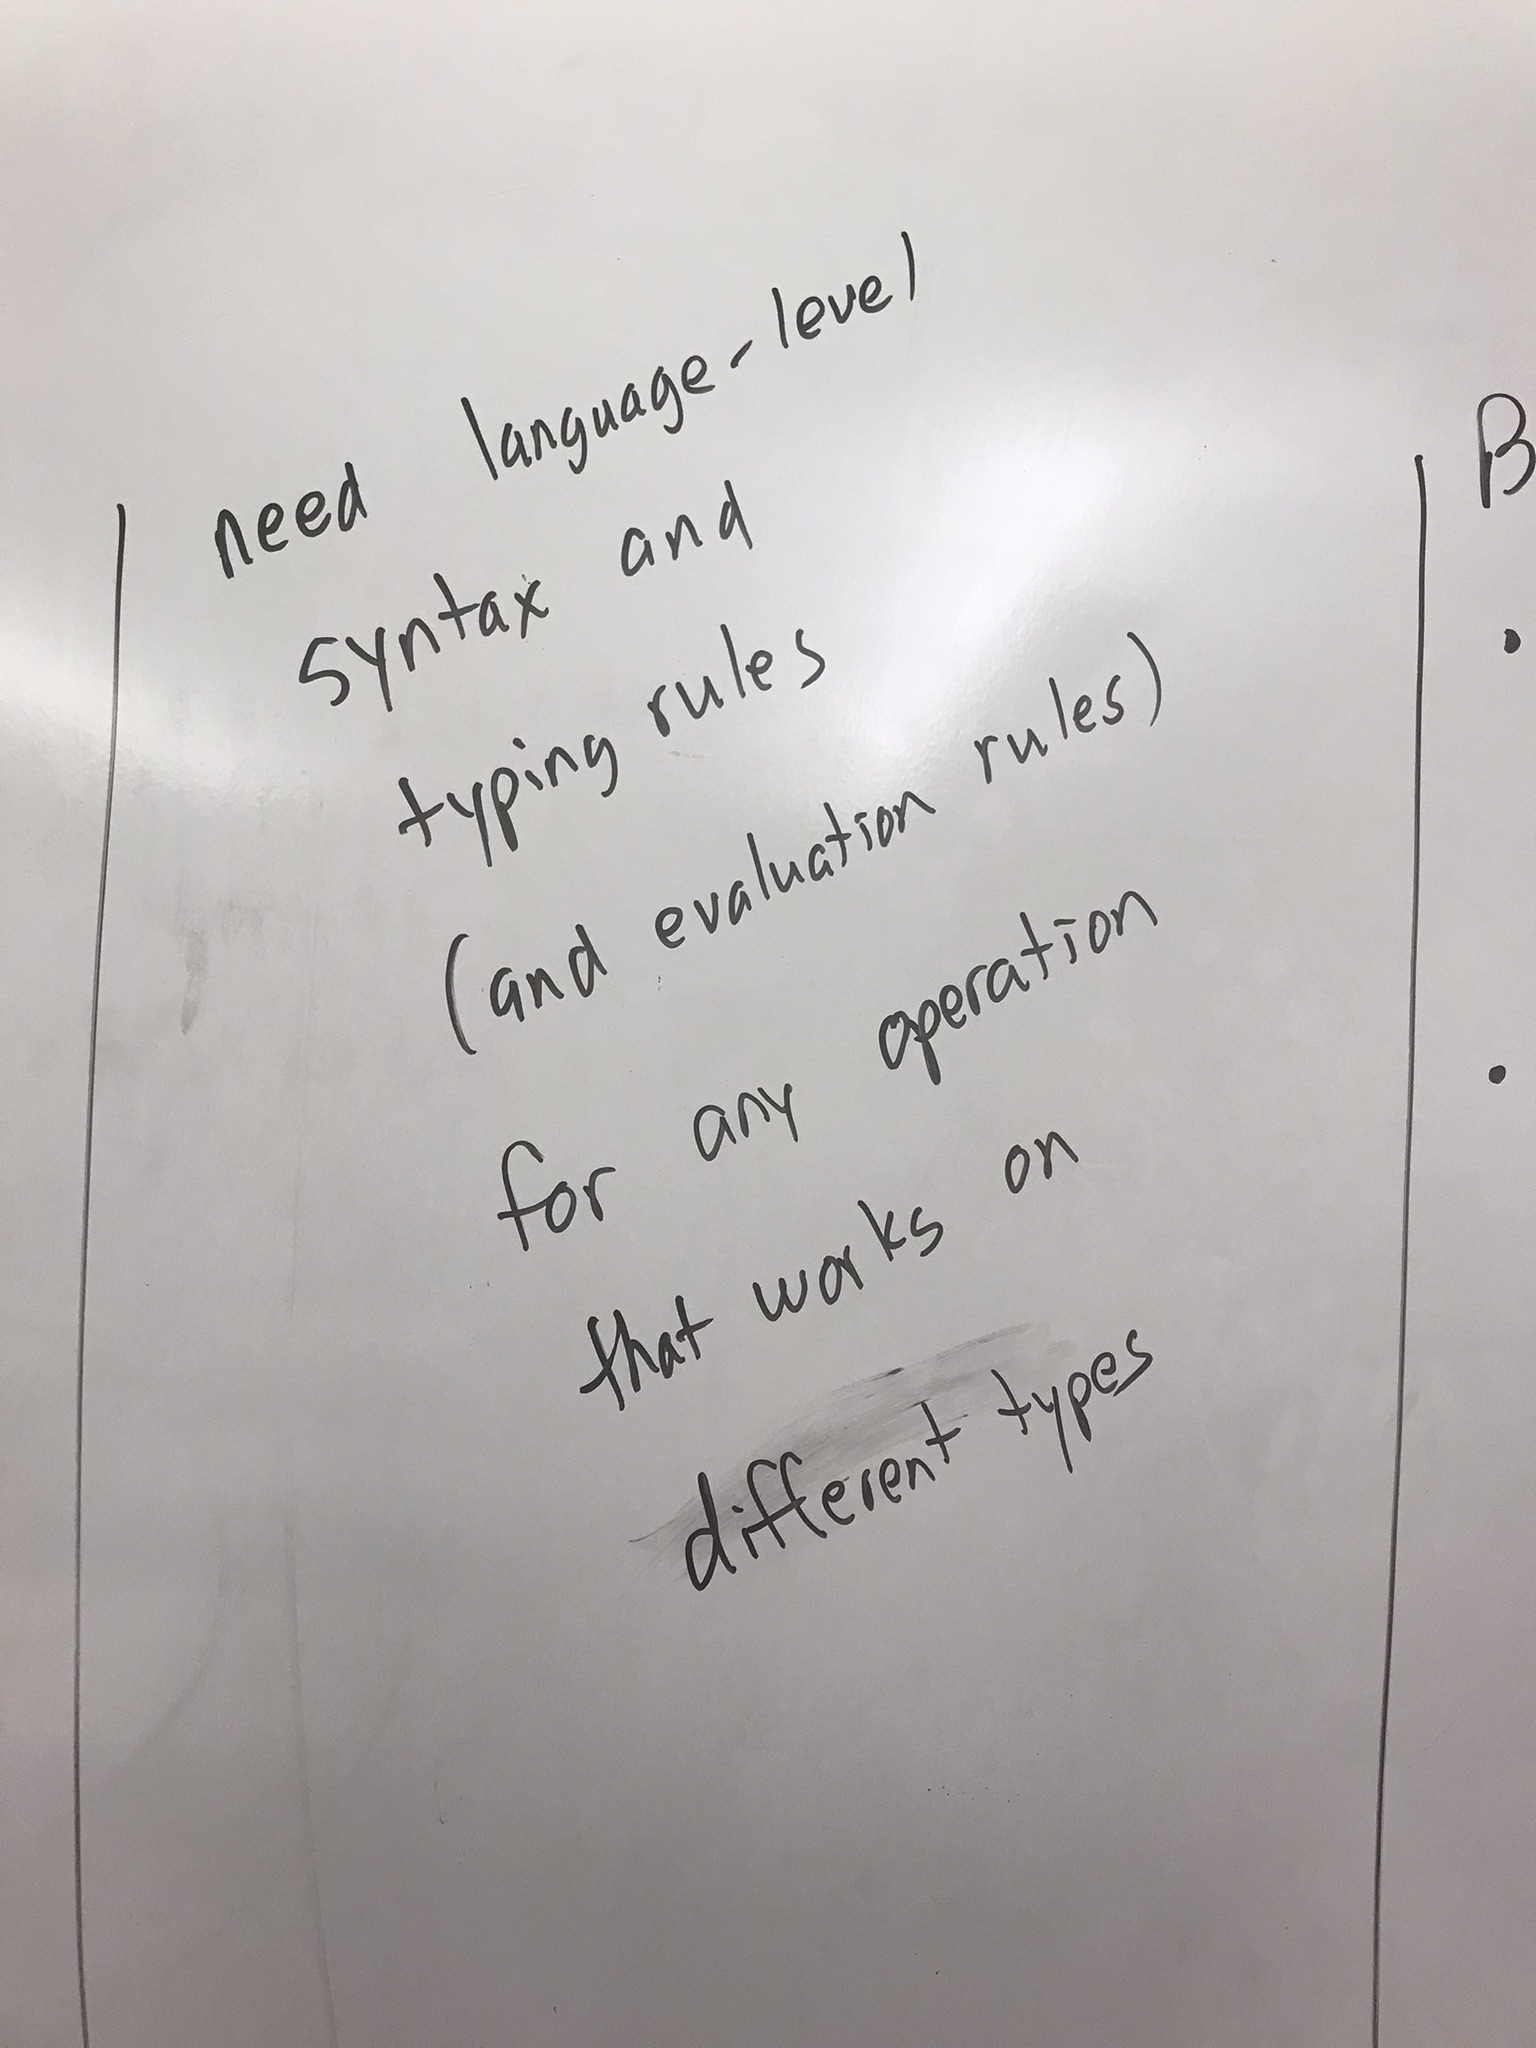 need language-level
syntax and
typing rules
(and evaluation rules)
for any operation
that works on
different types
B
•
•